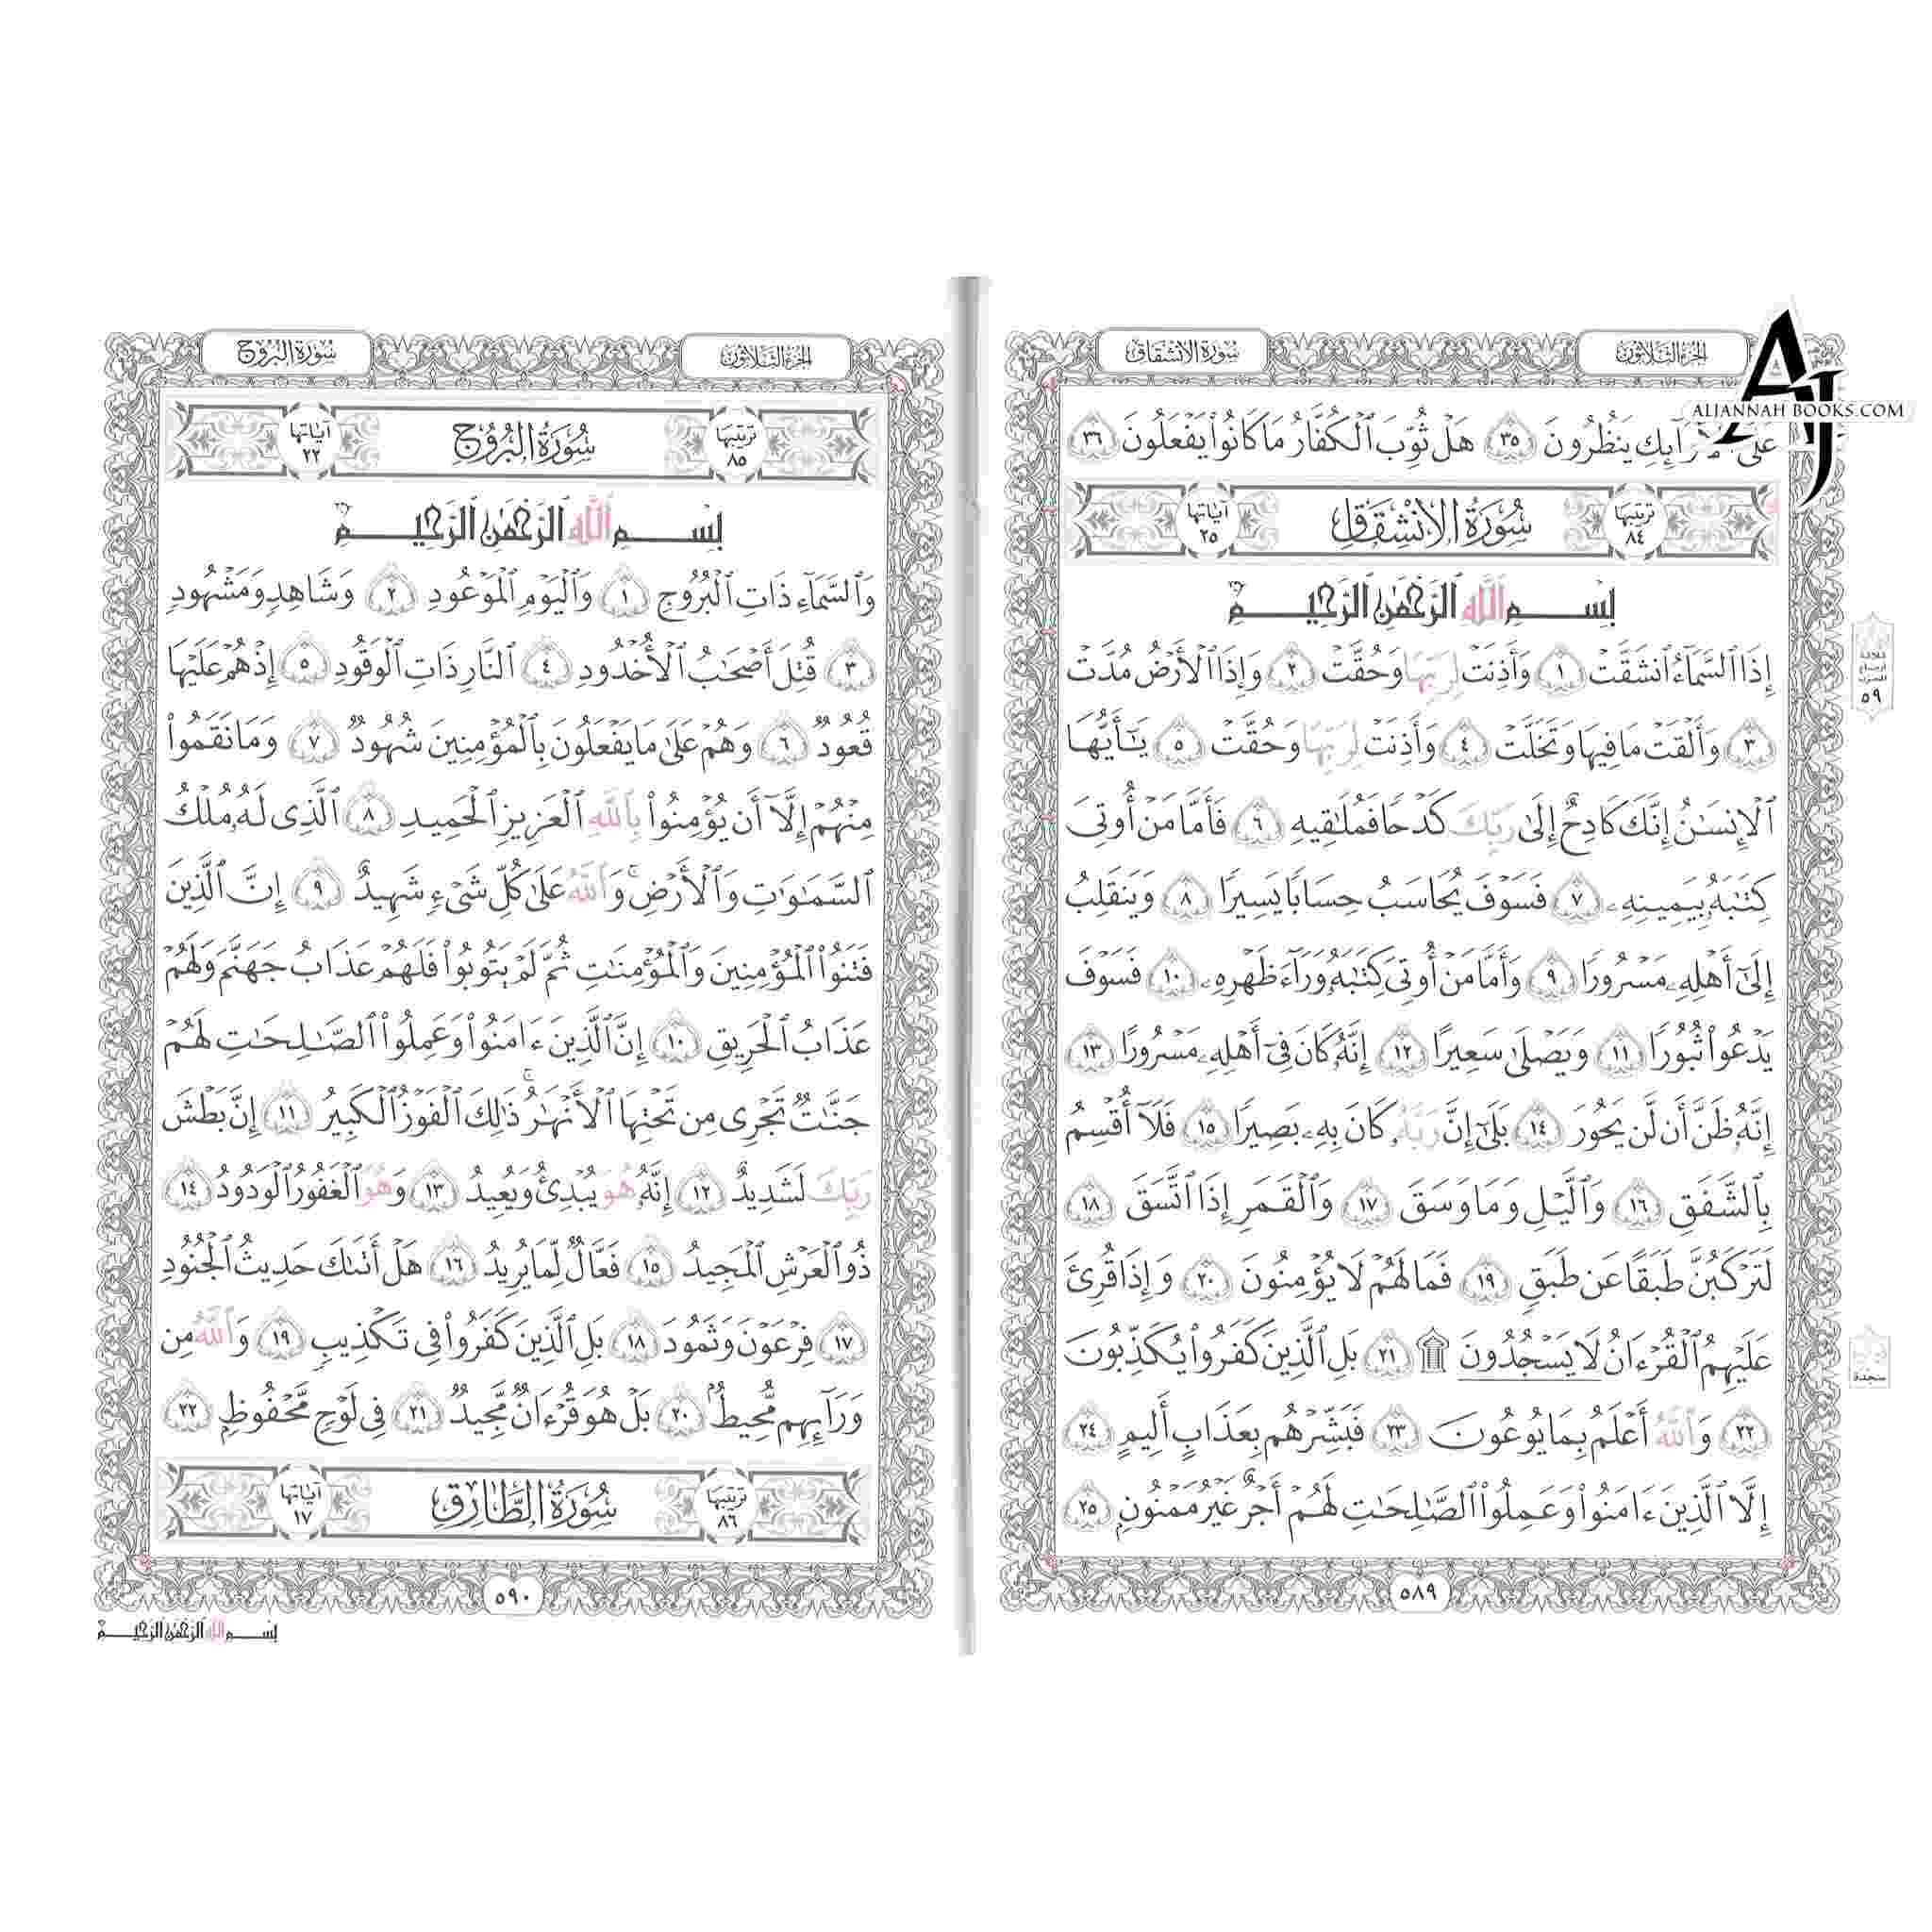 سُورَةُ الانْشِقَاق
الجُزْءُ الثَّلَاثُون
ALJANNAH BOOKS.COM
يَنظُرُونَ ٣٥ هَلْ ثُوِّبَ ٱلْكُفَّارُ مَا كَانُوا۟ يَفْعَلُونَ ٣٦
ترتيبها ٨٤ سُورَةُ الانْشِقَاقِ آياتها ٢٥
بِسْمِ ٱللَّهِ ٱلرَّحْمَٰنِ ٱلرَّحِيمِ
إِذَا ٱلسَّمَآءُ ٱنشَقَّتْ ١ وَأَذِنَتْ لِرَبِّهَا وَحُقَّتْ ٢ وَإِذَا ٱلْأَرْضُ مُدَّتْ
٣ وَأَلْقَتْ مَا فِيهَا وَتَخَلَّتْ ٤ وَأَذِنَتْ لِرَبِّهَا وَحُقَّتْ ٥ يَٰٓأَيُّهَا
ٱلْإِنسَٰنُ إِنَّكَ كَادِحٌ إِلَىٰ رَبِّكَ كَدْحًا فَمُلَٰقِيهِ ٦ فَأَمَّا مَنْ أُوتِىَ
كِتَٰبَهُۥ بِيَمِينِهِۦ ٧ فَسَوْفَ يُحَاسَبُ حِسَابًا يَسِيرًا ٨ وَيَنقَلِبُ
إِلَىٰٓ أَهْلِهِۦ مَسْرُورًا ٩ وَأَمَّا مَنْ أُوتِىَ كِتَٰبَهُۥ وَرَآءَ ظَهْرِهِۦ ١٠ فَسَوْفَ
يَدْعُوا۟ ثُبُورًا ١١ وَيَصْلَىٰ سَعِيرًا ١٢ إِنَّهُۥ كَانَ فِىٓ أَهْلِهِۦ مَسْرُورًا ١٣
إِنَّهُۥ ظَنَّ أَن لَّن يَحُورَ ١٤ بَلَىٰٓ إِنَّ رَبَّهُۥ كَانَ بِهِۦ بَصِيرًا ١٥ فَلَآ أُقْسِمُ
بِٱلشَّفَقِ ١٦ وَٱلَّيْلِ وَمَا وَسَقَ ١٧ وَٱلْقَمَرِ إِذَا ٱتَّسَقَ ١٨
لَتَرْكَبُنَّ طَبَقًا عَن طَبَقٍ ١٩ فَمَا لَهُمْ لَا يُؤْمِنُونَ ٢٠ وَإِذَا قُرِئَ
عَلَيْهِمُ ٱلْقُرْءَانُ لَا يَسْجُدُونَ ۩ ٢١ بَلِ ٱلَّذِينَ كَفَرُوا۟ يُكَذِّبُونَ
٢٢ وَٱللَّهُ أَعْلَمُ بِمَا يُوعُونَ ٢٣ فَبَشِّرْهُم بِعَذَابٍ أَلِيمٍ ٢٤
إِلَّا ٱلَّذِينَ ءَامَنُوا۟ وَعَمِلُوا۟ ٱلصَّٰلِحَٰتِ لَهُمْ أَجْرٌ غَيْرُ مَمْنُونٍۭ ٢٥
٥٨٩
ثلاثة
أرباع
الحزب
٥٩
سجدة
سُورَةُ البُرُوج
الجُزْءُ الثَّلَاثُون
ترتيبها ٨٥ سُورَةُ البُرُوجِ آياتها ٢٢
بِسْمِ ٱللَّهِ ٱلرَّحْمَٰنِ ٱلرَّحِيمِ
وَٱلسَّمَآءِ ذَاتِ ٱلْبُرُوجِ ١ وَٱلْيَوْمِ ٱلْمَوْعُودِ ٢ وَشَاهِدٍ وَمَشْهُودٍ
٣ قُتِلَ أَصْحَٰبُ ٱلْأُخْدُودِ ٤ ٱلنَّارِ ذَاتِ ٱلْوَقُودِ ٥ إِذْ هُمْ عَلَيْهَا
قُعُودٌ ٦ وَهُمْ عَلَىٰ مَا يَفْعَلُونَ بِٱلْمُؤْمِنِينَ شُهُودٌ ٧ وَمَا نَقَمُوا۟
مِنْهُمْ إِلَّآ أَن يُؤْمِنُوا۟ بِٱللَّهِ ٱلْعَزِيزِ ٱلْحَمِيدِ ٨ ٱلَّذِى لَهُۥ مُلْكُ
ٱلسَّمَٰوَٰتِ وَٱلْأَرْضِ ۚ وَٱللَّهُ عَلَىٰ كُلِّ شَىْءٍ شَهِيدٌ ٩ إِنَّ ٱلَّذِينَ
فَتَنُوا۟ ٱلْمُؤْمِنِينَ وَٱلْمُؤْمِنَٰتِ ثُمَّ لَمْ يَتُوبُوا۟ فَلَهُمْ عَذَابُ جَهَنَّمَ وَلَهُمْ
عَذَابُ ٱلْحَرِيقِ ١٠ إِنَّ ٱلَّذِينَ ءَامَنُوا۟ وَعَمِلُوا۟ ٱلصَّٰلِحَٰتِ لَهُمْ
جَنَّٰتٌ تَجْرِى مِن تَحْتِهَا ٱلْأَنْهَٰرُ ۚ ذَٰلِكَ ٱلْفَوْزُ ٱلْكَبِيرُ ١١ إِنَّ بَطْشَ
رَبِّكَ لَشَدِيدٌ ١٢ إِنَّهُۥ هُوَ يُبْدِئُ وَيُعِيدُ ١٣ وَهُوَ ٱلْغَفُورُ ٱلْوَدُودُ ١٤
ذُو ٱلْعَرْشِ ٱلْمَجِيدُ ١٥ فَعَّالٌ لِّمَا يُرِيدُ ١٦ هَلْ أَتَىٰكَ حَدِيثُ ٱلْجُنُودِ
١٧ فِرْعَوْنَ وَثَمُودَ ١٨ بَلِ ٱلَّذِينَ كَفَرُوا۟ فِى تَكْذِيبٍ ١٩ وَٱللَّهُ مِن
وَرَآئِهِم مُّحِيطٌۢ ٢٠ بَلْ هُوَ قُرْءَانٌ مَّجِيدٌ ٢١ فِى لَوْحٍ مَّحْفُوظٍۭ ٢٢
ترتيبها ٨٦ سُورَةُ الطَّارِقِ آياتها ١٧
٥٩٠
بِسْمِ ٱللَّهِ ٱلرَّحْمَٰنِ ٱلرَّحِيمِ